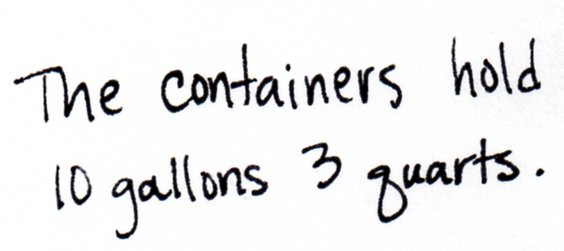 The containers hold
10 gallons 3 quarts.